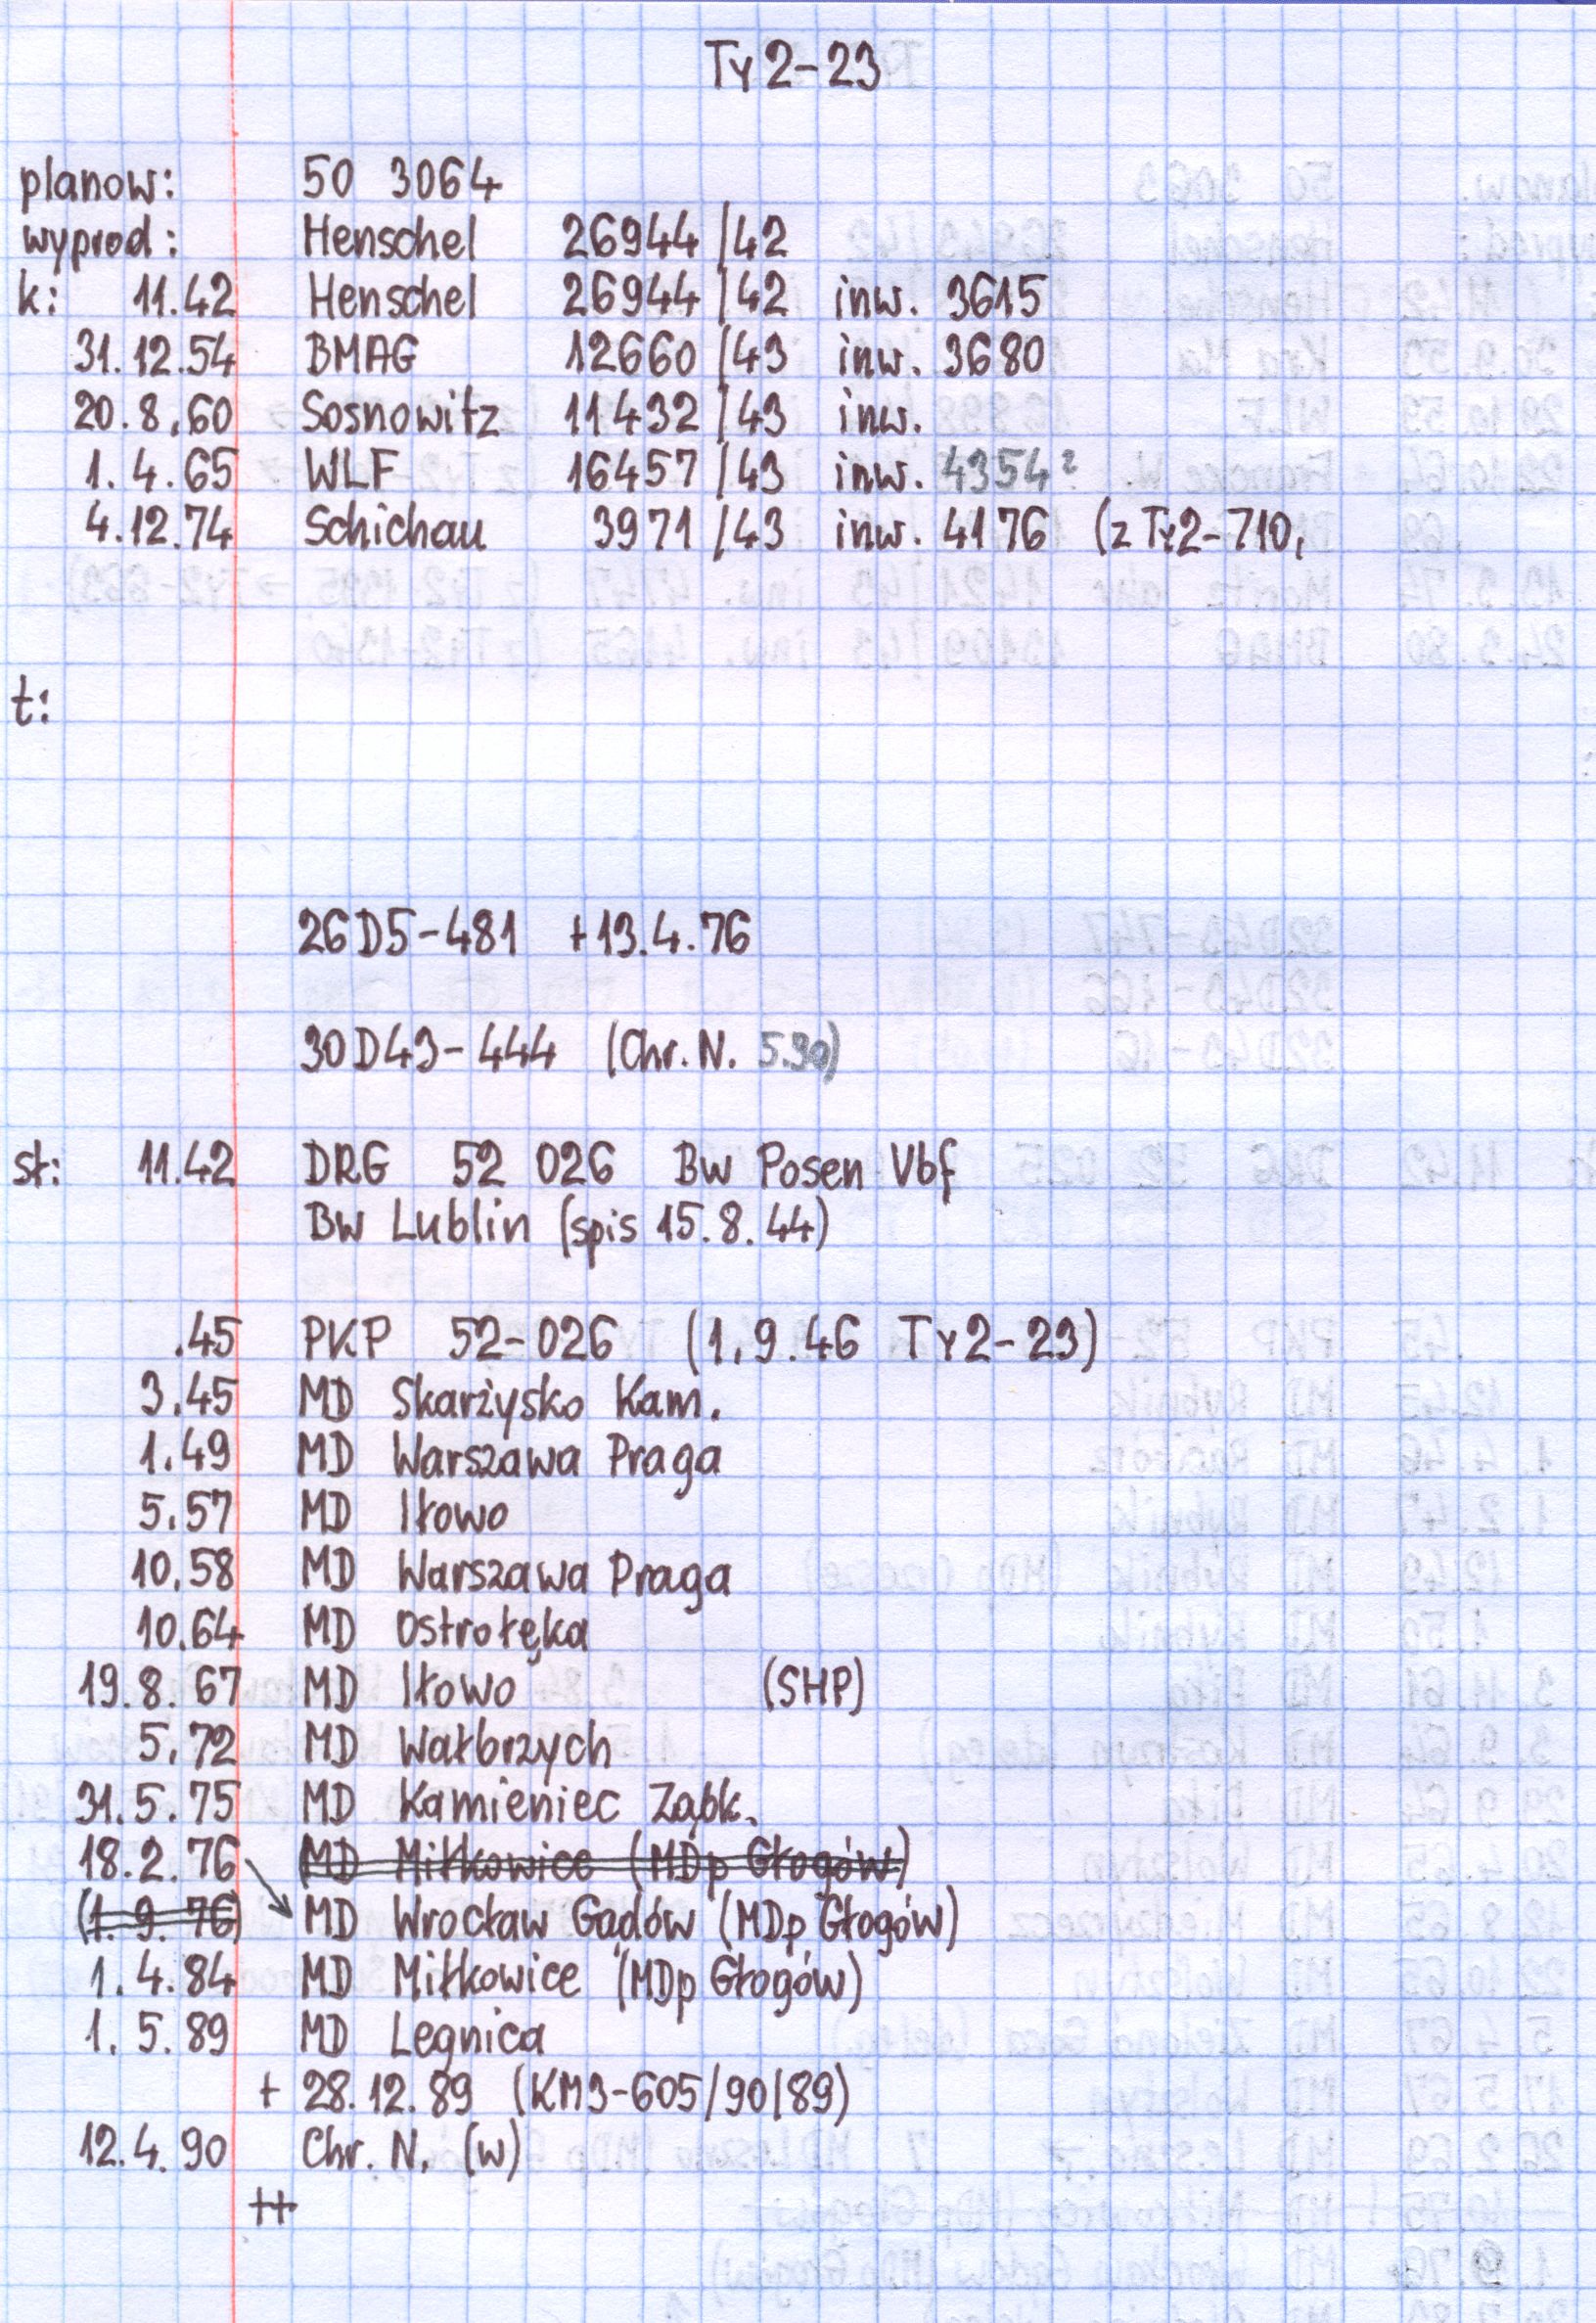 Ty2-23
planow: 50 3064
wyprod: Henschel 26944/42
k: 11.42 Henschel 26944/42 inw. 3615
31.12.54 BMAG 12660/43 inw. 3680
20.8.60 Sosnowitz 11432/43 inw.
1.4.65 WLF 16457/43 inw. 4354?
4.12.74 Schichau 3971/43 inw. 4176 (z Ty2-710,
t:
26D5-481 +13.4.76
30D43-444 (Chr. N. 5.90)
st: 11.42 DRG 52 026 Bw Posen Vbf
Bw Lublin (spis 15.8.44)
.45 PKP 52-026 (1.9.46 Ty2-23)
3.45 MD Skarżysko Kam.
1.49 MD Warszawa Praga
5.57 MD Iłowo
10.58 MD Warszawa Praga
10.64 MD Ostrołęka
19.8.67 MD Iłowo (SHP)
5.72 MD Wałbrzych
31.5.75 MD Kamieniec Ząbk.
18.2.76 MD Miłkowice (MDp Głogów)
(1.9.76) MD Wrocław Gądów (MDp Głogów)
1.4.84 MD Miłkowice (MDp Głogów)
1.5.89 MD Legnica
+ 28.12.89 (KM3-605/90/89)
12.4.90 Chr. N. (w)
++